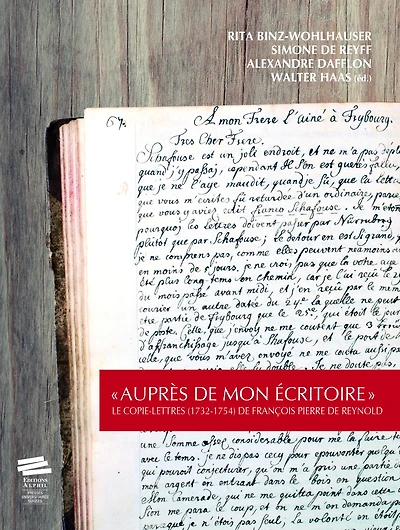 RITA BINZ-WOHLHAUSER
SIMONE DE REYFF
ALEXANDRE DAFFLON
WALTER HAAS (éd.)
67. A mon Frere l'ainé à Frybourg.
Tres Cher Frere.
Schafouse est un joli endroit, et ne m'a pas
quand j'y passaj, cependant il s'en est
que je ne l'aye maudit, quand je sû, que la
que vous m'écrites fû retardée d'un ordinaire,
que vous y aviez mit franco Schafouse. Je
pourquoj les lettres doivent passer par Nürnberg
plutôt que par Schafouse; le detour en est si grand,
je ne comprens pas, comme elles peuvent neamoins
en moins de jours, je ne crois, pas que la votre aye
été plus long-tems en chemin, car je l'aj reçü le
du mois passé avant midi, et j'en reçûe par le
courier un autre datée du 24.e la quelle ne peut
être partie de Frybourg que le 25.e, qui étoit le jour
de poste. Celle, que j'envoy ne me coutent que 3
d'affranchissage jusqu'à Shafouse, et le port de
celle, que vous m'avez envoyé ne me couta aussi
elle du double. Je ne doute pas,
« AUPRÈS DE MON ÉCRITOIRE »
LE COPIE-LETTRES (1732-1754) DE FRANÇOIS PIERRE DE REYNOLD
somme assez considerable pour me la faire
avec le tems. je ne dis pas cecy pour epouventer
qui pouroit conjecturer, qu'on m'a pris une partie
mon argent en entrant dans le bois en question
Mon Camerade, qui ne me quitta point dans cette
me para le coup, et on ne m'en demanda
parceque je n'étois pas seul. La volonté en étoit
EDITIONS
ALPHIL
PRESSES
UNIVERSITAIRES
SUISSES